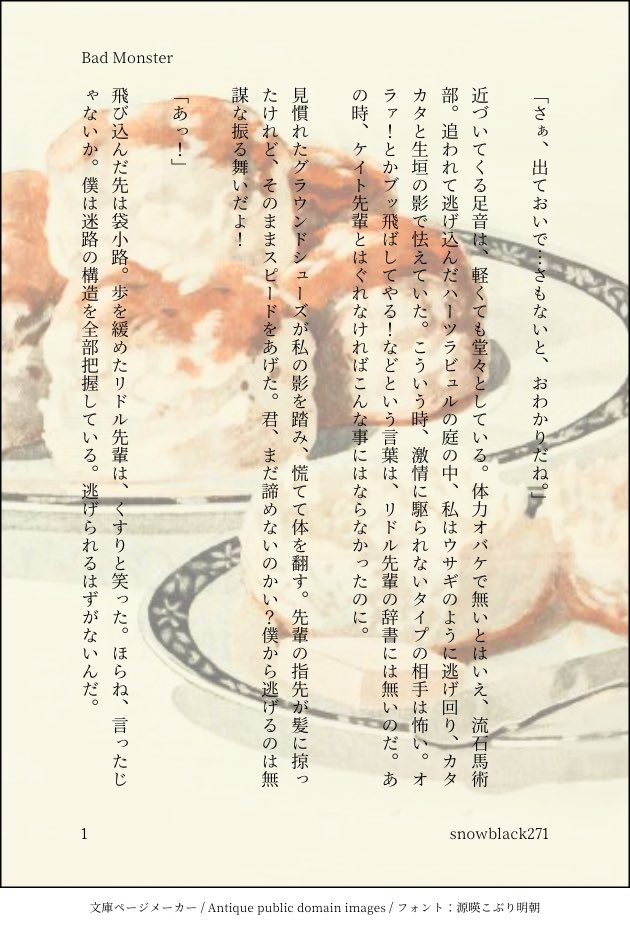 Bad Monster
「さぁ、出ておいで…さもないと、おわかりだね。」
近づいてくる足音は、軽くても堂々としている。体力オバケで無いとはいえ、流石馬術
部。追われて逃げ込んだハーツラビュルの庭の中、私はウサギのように逃げ回り、カタ
カタと生垣の影で怯えていた。こういう時、激情に駆られないタイプの相手は怖い。オ
ラァ！とかブッ飛ばしてやる！などという言葉は、リドル先輩の辞書には無いのだ。あ
の時、ケイト先輩とはぐれなければこんな事にはならなかったのに。
見慣れたグラウンドシューズが私の影を踏み、慌てて体を翻す。先輩の指先が髪に掠っ
たけれど、そのままスピードをあげた。君、まだ諦めないのかい？僕から逃げるのは無
謀な振る舞いだよ！
「あっ！」
飛び込んだ先は袋小路。歩を緩めたリドル先輩は、くすりと笑った。ほらね、言ったじ
ゃないか。僕は迷路の構造を全部把握している。逃げられるはずがないんだ。
1
snowblack271
文庫ページメーカー / Antique public domain images / フォント：源暎こぶり明朝